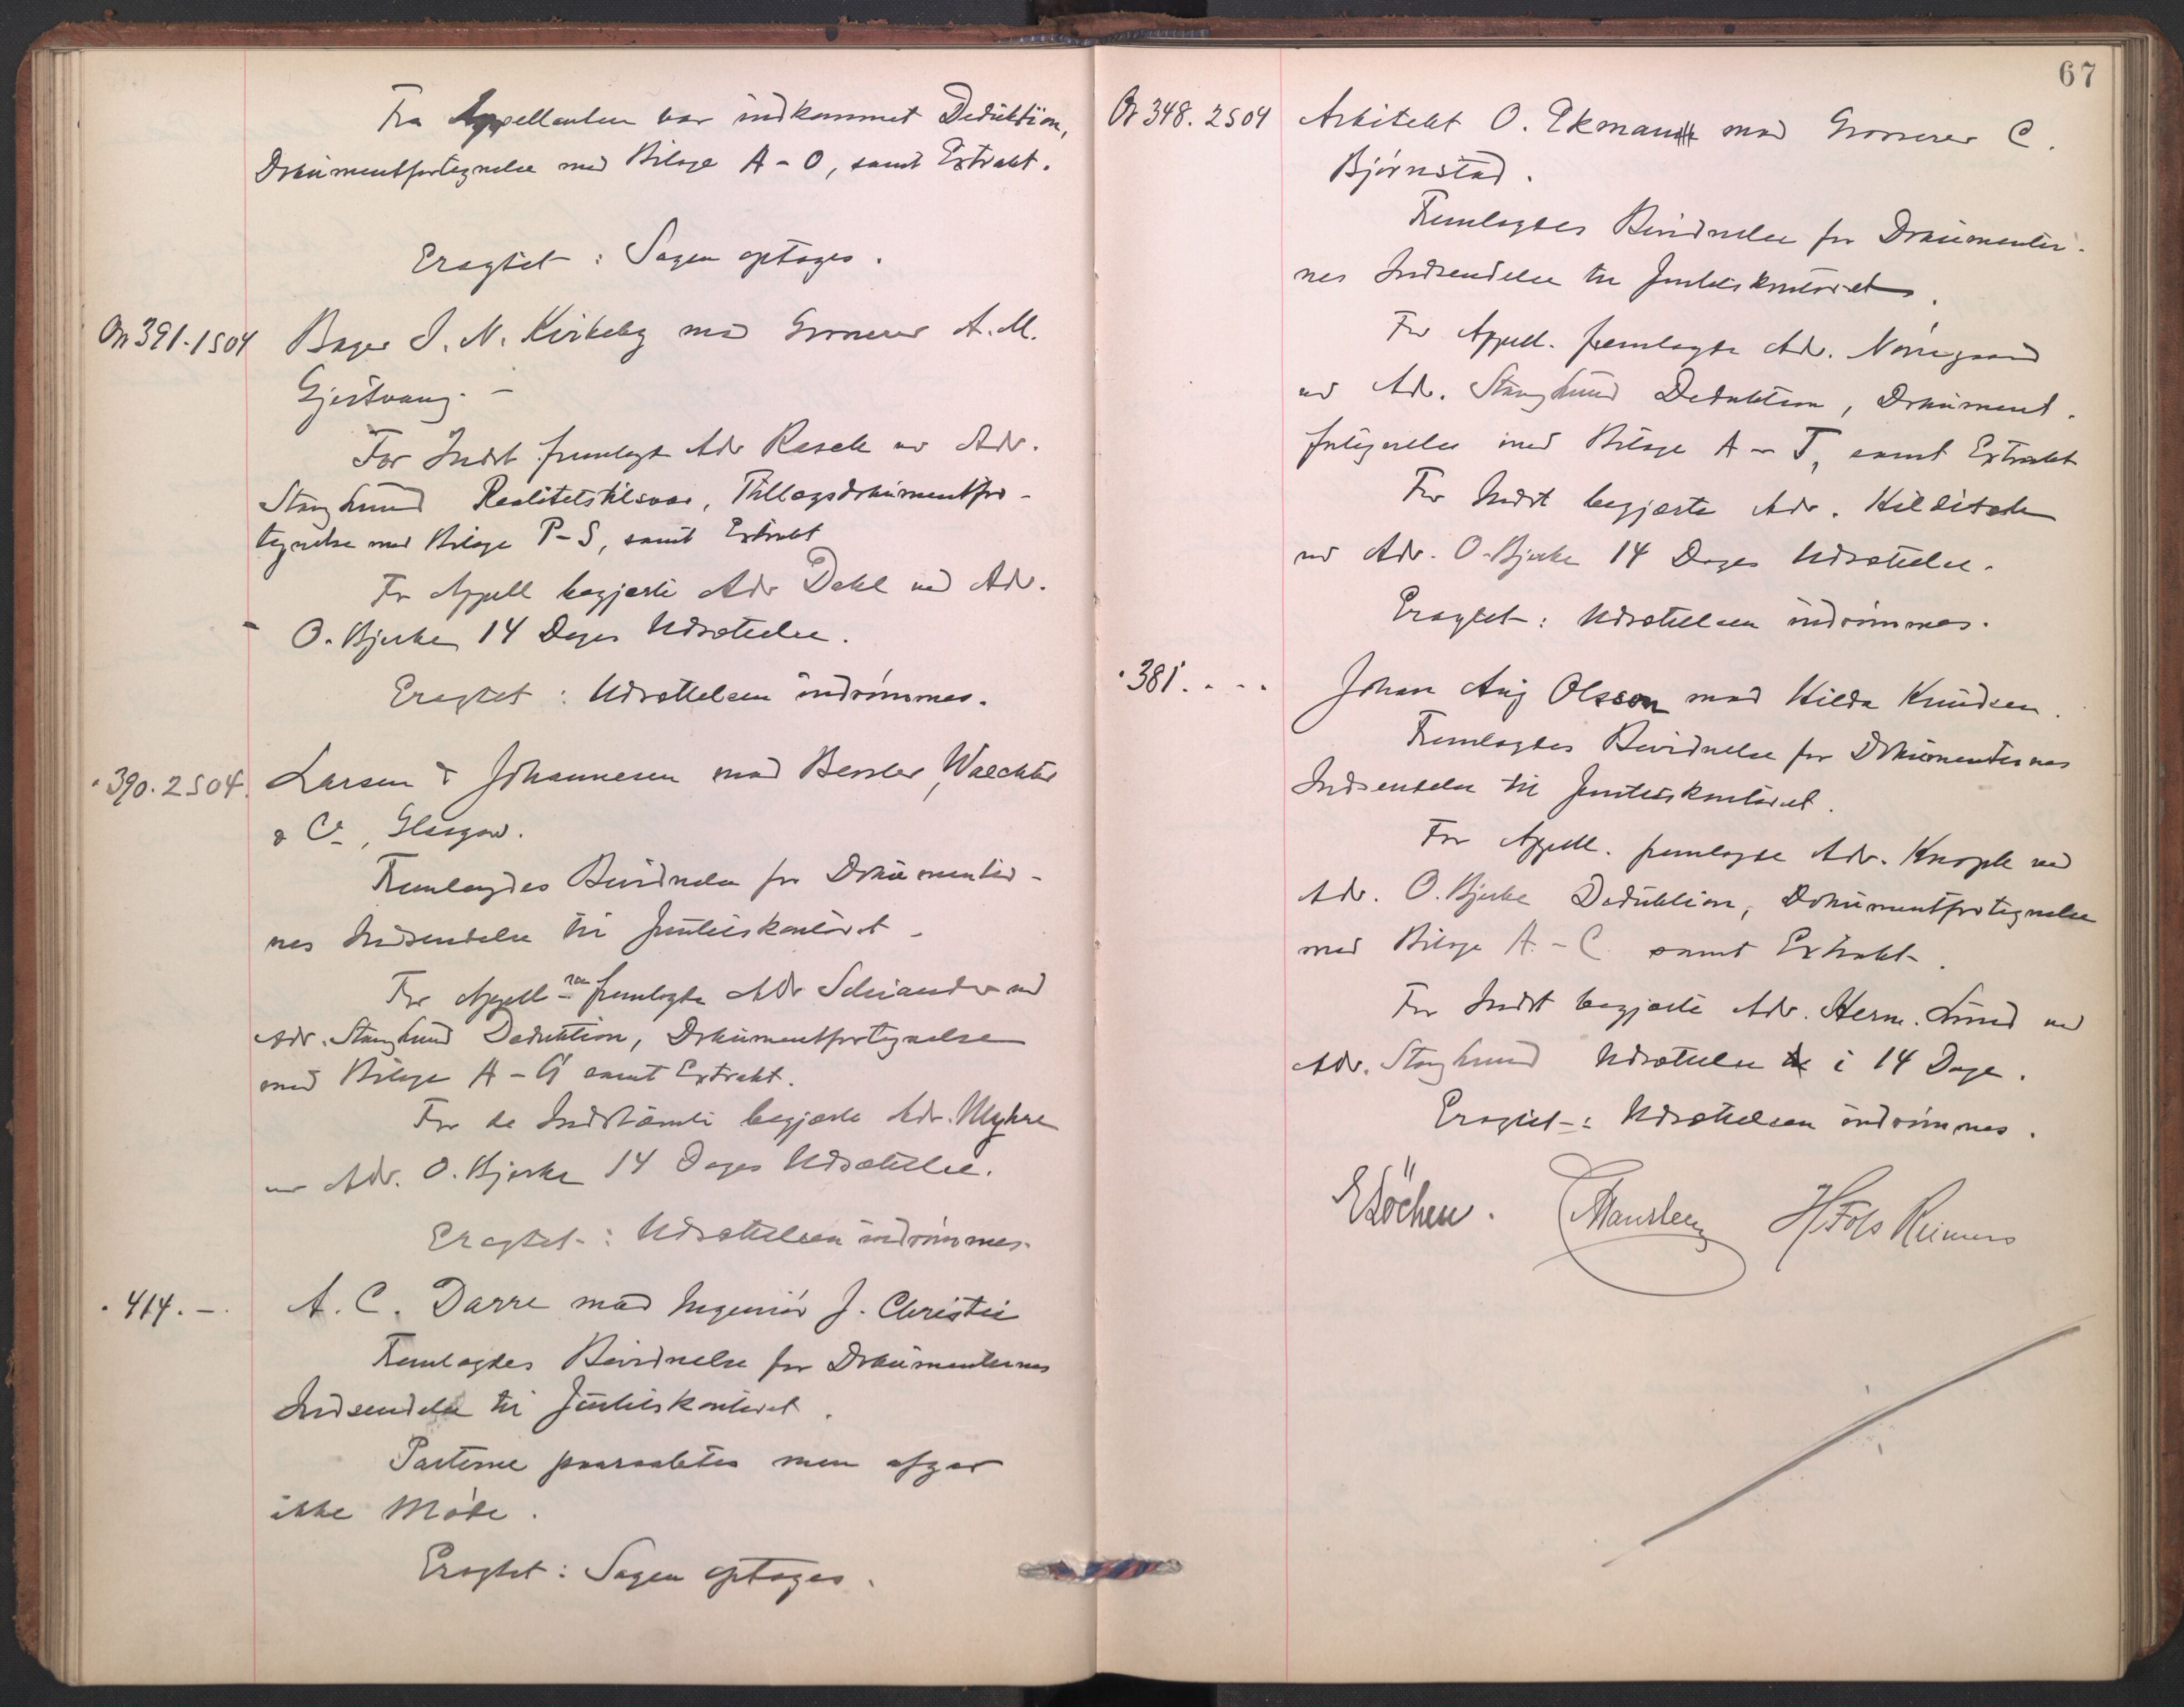 Fra Appellanten var indkommet Deduktion,
Dokumentfortegnelse med Bilage A-O, samt Extrakt.
Eragtet: Sagen optages.
On 391-1S04 Bager I. N. Kirkeby mod Grosserer A. M.
Gjestvang. -
For Indst fremlagde Adv Rasch ved Adv.
Stang Lund Realitetstilsvar, Tillægsdokumentfor-
tegnelse med Bilage P-S, samt Extrakt
For Appell begjærte Adv Dahl ved Adv.
O. Bjerke 14 Dages Udsættelse.
Eragtet: Udsættelsen indrømmes.
" 390. 2S04. Larsen & Johannesen mod Bessler, Waechter
& Co, Glasgow.
Fremlagdes Bevidnelse for Dokumenter-
nes Indsendelse til Justitskontoret -
For Appell-ne fremlagde Adv ved
Adv. Stang Lund Deduktion, Dokumentfortegnelse
med Bilage A-G samt Extrakt.
For de Indstævnte begjærte Adv. Myhre
ved Adv. O. Bjerke 14 Dages Udsættelse.
Eragtet: Udsættelsen indrømmes.
" 414. -. A. C. Darre mod Ingeniør J. Christie
Fremlagdes Bevidnelse for Dokumenternes
Indsendelse til Justitskontoret.
Parterne paaraabtes men afgav
ikke Møde.
Eragtet: Sagen optages.
67
Or 348. 2S04 Arkitekt O. Ekman mod Grosserer C.
Bjørnstad.
Fremlagdes Bevidnelse for Dokumenter-
nes Indsendelse til Justitskontoret.
For Appell. fremlagde Adv. Nørregaard
ved Adv. Stang Lund Deduktion, Dokument-
fortegnelse med Bilage A-T, samt Extrakt
For Indst begjærte Adv.
ved Adv. O. Bjerke 14 Dages Udsættelse.
Eragtet: Udsættelsen indrømmes.
" 381. - - - Johan Aug Olsson mod Hilda Knudsen.
Fremlagdes Bevidnelse for Dokumenternes
Indsendelse til Justitskontoret.
For Appell. fremlagde Adv. Knoph ved
Adv. O. Bjerke Deduktion, Dokumentfortegnelse
med Bilage A.-C. samt Extrakt.
For Indst begjærte Adv. Herm. Lund ved
Adv. Stang Lund Udsættelse i 14 Dage.
Eragtet: Udsættelsen indrømmes.
E Löchen. H. Fols Reimers